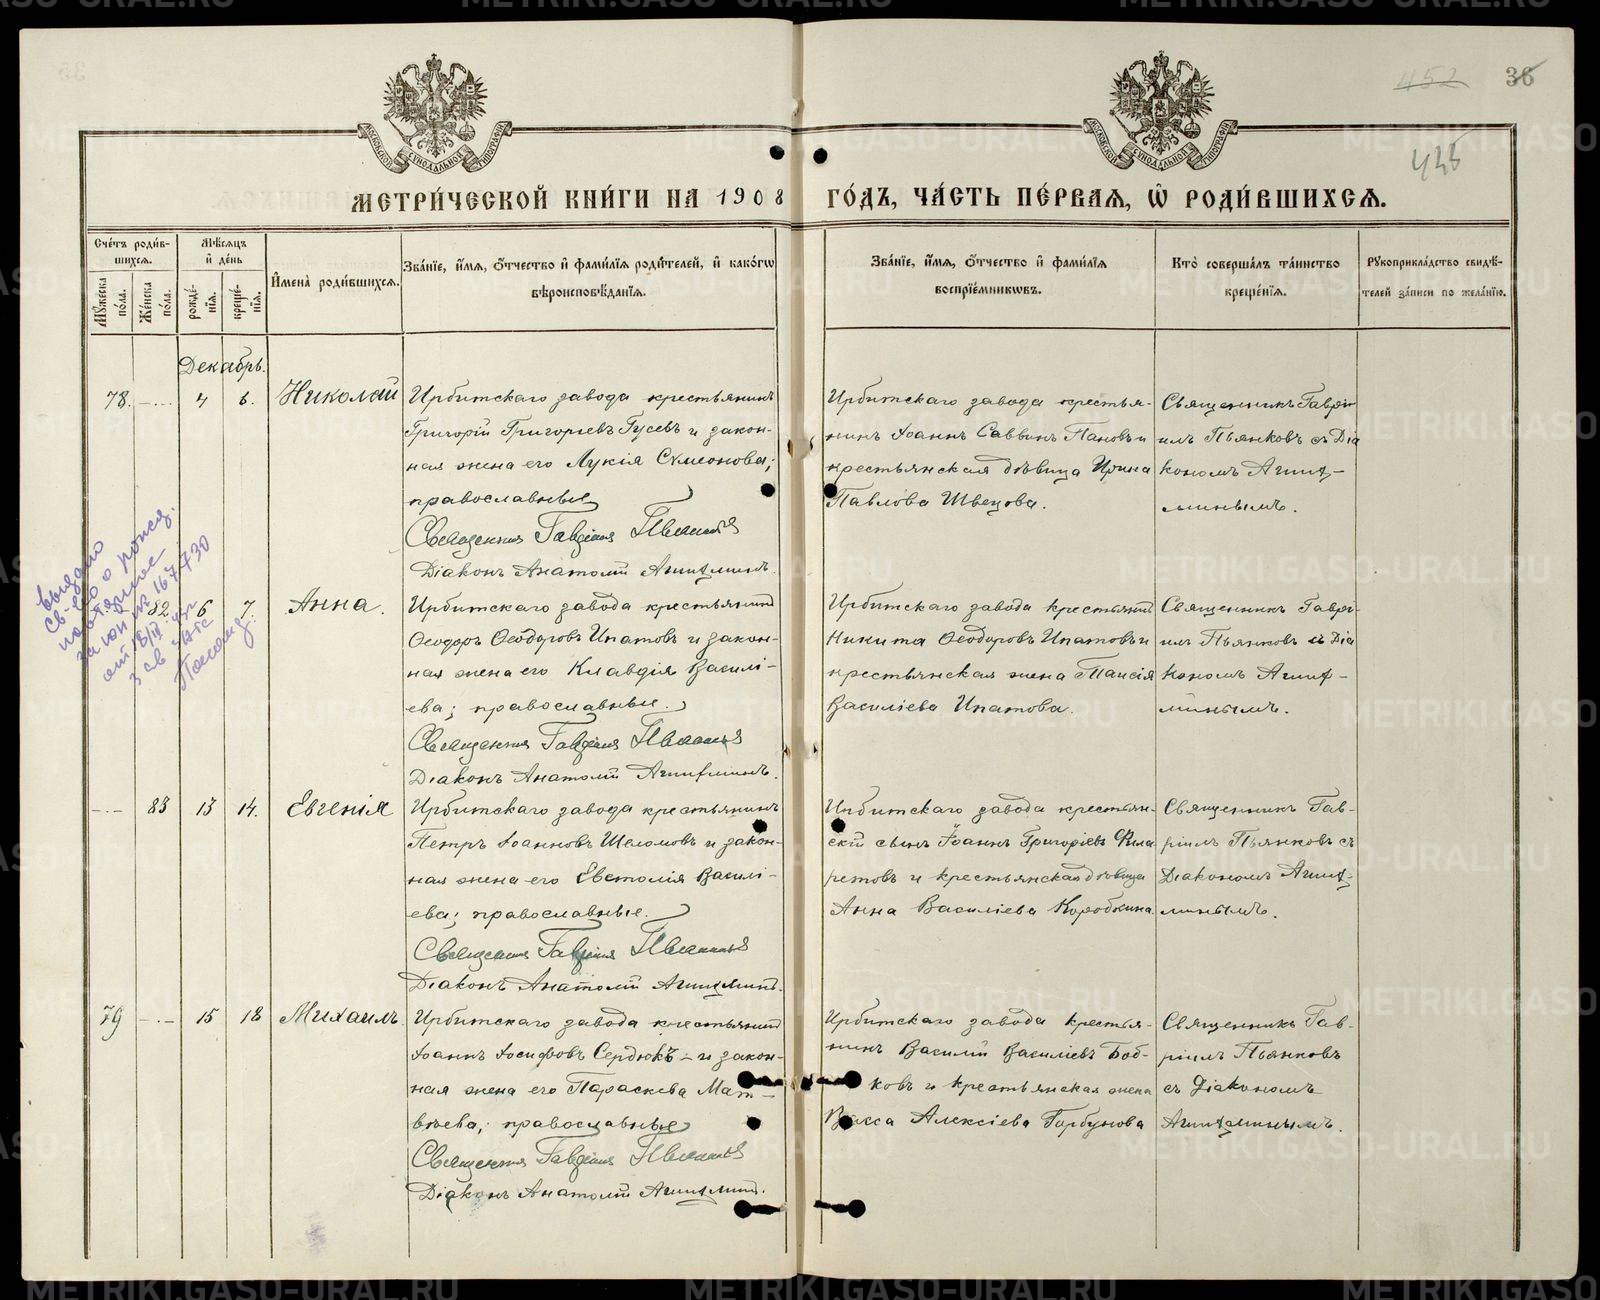 452 36
445
МЕТРИ́ЧЕСКОЙ КНИ́ГИ НА 1908 ГО́ДЪ, ЧА́СТЬ ПЕ́РВАѦ, Ѽ РОДИ́ВШИХСѦ.
Сче́тъ роди́в-
шихсѧ.
Мѹ́жеска по́ла.
Же́нска по́ла.
Мѣ́сѧцъ
и҆ де́нь
рожде́-
нїѧ.
креще́-
нїѧ.
И҆мена̀ роди́вшихсѧ.
Зва́нїе, и҆́мѧ, ѻ҆́тчество и҆ фами́лїѧ роди́телей, и҆ како́гѡ
вѣроисповѣ́данїѧ.
Зва́нїе, и҆́мѧ, ѻ҆́тчество и҆ фами́лїѧ
воспрїе́мникѡвъ.
Кто̀ соверша́лъ та́инство
креще́нїѧ.
Рѹкоприкла́дство свидѣ́-
телей за́писи по жела́нїю.
Декабрь.
78. — 4 6. Николай
Ирбитскаго завода крестьянинъ
Григорій Григорьевъ Гусевъ и закон-
ная жена его Лукія Сѵмеонова;
православные
Священникъ Гавріилъ Пьянковъ
Діаконъ Анатолій
Ирбитскаго завода крестья-
нинъ Іоаннъ Саввинъ Пановъ и
крестьянская дѣвица Ирина
Павлова Швецова.
Священникъ Гаврі-
илъ Пьянковъ съ Діа
кономъ
выдано
св-во о рожд.
82. 6 7. Анна.
Ирбитскаго завода крестьянинъ
Ѳеодоръ Ѳеодоровъ Ипатовъ и закон-
ная жена его Клавдія Василі-
ева; православные.
Священникъ Гавріилъ Пьянковъ
Діаконъ Анатолій
Ирбитскаго завода крестьянинъ
Никита Ѳеодоровъ Ипатовъ и
крестьянская жена Таисія
Василіева Ипатова.
Священникъ Гаврі-
илъ Пьянковъ съ Діа
кономъ
— 83 13 14. Евгенія
Ирбитскаго завода крестьянинъ
Петръ Іоанновъ Шеломовъ и закон-
ная жена его Евстолія Василі-
ева; православные.
Священникъ Гавріилъ Пьянковъ
Діаконъ Анатолій
Ирбитскаго завода крестьян-
скій сынъ Іоаннъ Григоріевъ Фила
ретовъ и крестьянская дѣвица
Анна Василіева Коробкина
Священникъ Гав-
ріилъ Пьянковъ съ
Діакономъ
79 — 15 18 Михаилъ
Ирбитскаго завода крестьянинъ
Іоаннъ Іосифовъ Сердюкъ и закон-
ная жена его Параскева Мат-
вѣева; православные
Священникъ Гавріилъ Пьянковъ
Діаконъ Анатолій
Ирбитскаго завода крестья-
нинъ Василій Василіевъ Боб-
ковъ и крестьянская жена
Васса Алексіева Горбунова
Священникъ Гав-
ріилъ Пьянковъ
съ Діакономъ
METRIKI.GASO-URAL.RU